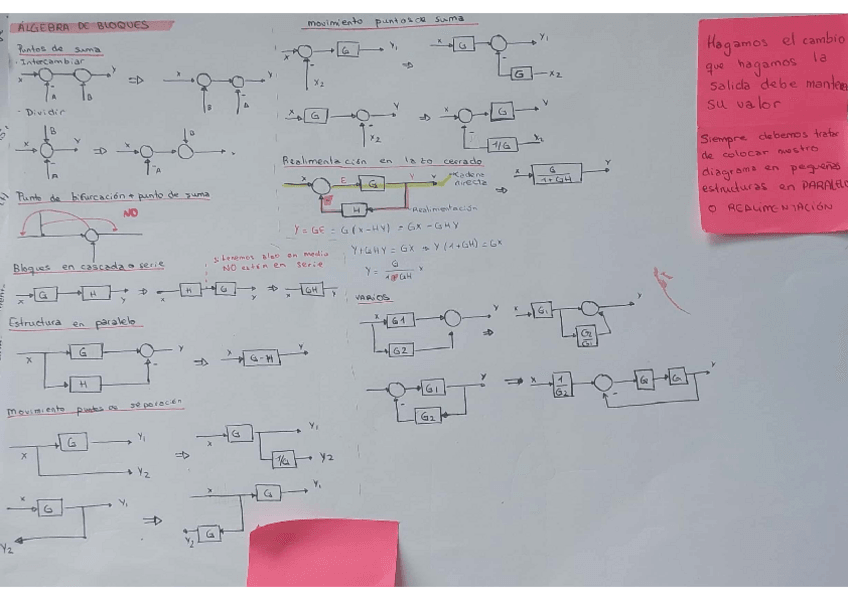 ÁLGEBRA DE BLOQUES
Puntos de suma
- Intercambiar
x - A - B Y ⇒ x B - A Y
- Dividir
B
x - A Y ⇒ x - A
Punto de bifurcación + punto de suma
NO
Bloques en cascada o serie
si tenemos algo en medio
NO están en serie
x G H Y ⇒ x H G Y ⇒ x GH Y
Estructura en paralelo
x G H - Y ⇒ x G-H Y
Movimiento puntos de separación
x G Y1 Y2 ⇒ x G Y1 1/G Y2
x G Y1 Y2 ⇒ x G Y1 G Y2
movimiento puntos de suma
x - x2 G Y1 ⇒ x G - Y1 G x2
x G - x2 Y ⇒ x - G Y 1/G x2
Realimentación en lazo cerrado
x E G Y H
Cadena
directa
Realimentación
⇒ x G/1+GH Y
Y = GE = G(x-HY) = GX - GHY
Y+GHY = GX ⇒ Y(1+GH) = GX
Y = G/1+GH x
VARIOS
x G1 G2 Y ⇒ x G1 G2/G1 Y
- G1 G2 Y ⇒ x 1/G2 - G2 G1 Y
Hagamos el cambio
que hagamos la
salida debe mantener
su valor
Siempre debemos tratar
de colocar nuestro
diagrama en pequeñas
estructuras en PARALELO
O REALIMENTACIÓN